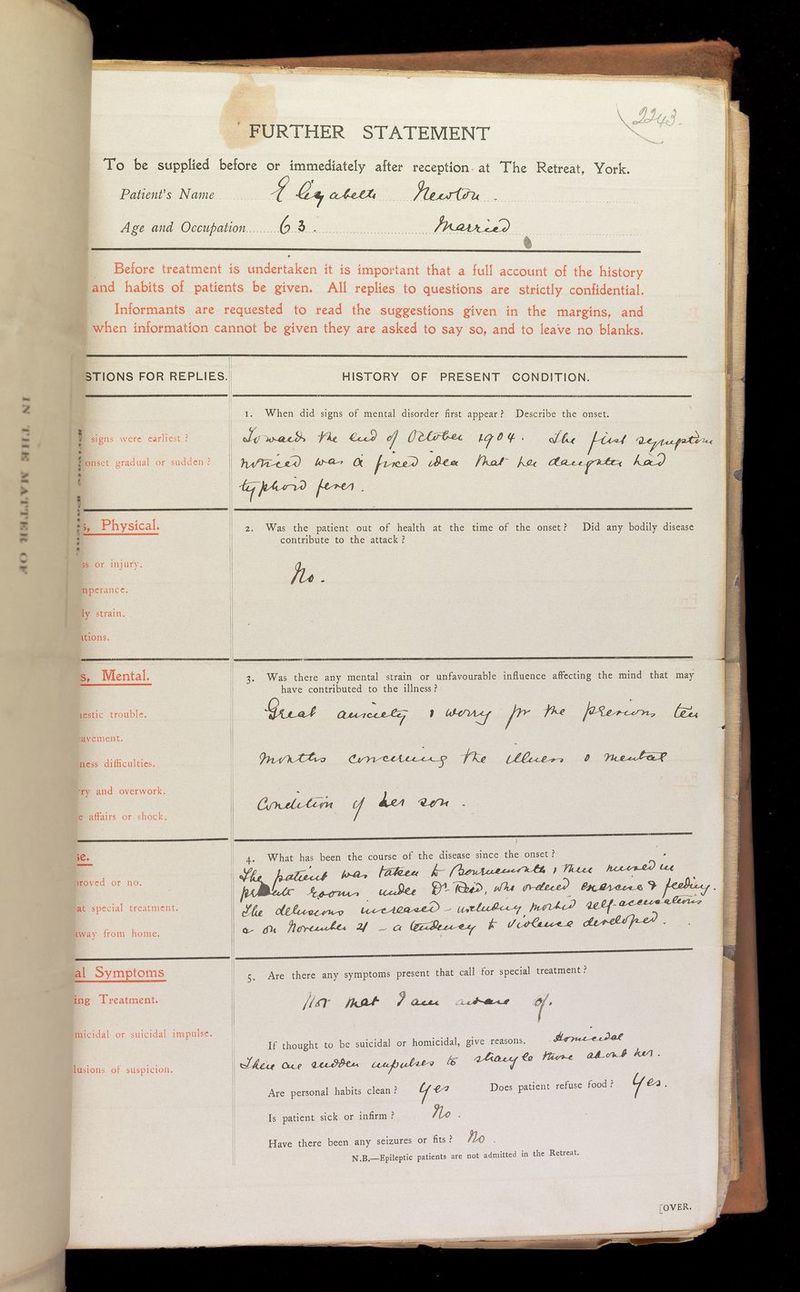 2243.
FURTHER STATEMENT
To be supplied before or immediately after reception at The Retreat, York.
Patient's Name Elizabeth Newton.
Age and Occupation 63. Married
Before treatment is undertaken it is important that a full account of the history
and habits of patients be given. All replies to questions are strictly confidential.
Informants are requested to read the suggestions given in the margins, and
when information cannot be given they are asked to say so, and to leave no blanks.
STIONS FOR REPLIES. HISTORY OF PRESENT CONDITION.
signs were earliest?
onset gradual or sudden?
1. When did signs of mental disorder first appear? Describe the onset.
Towards the end of October 1904. The first symptom
noticed was a fixed idea that her daughter had
typhoid fever.
s, Physical.
ss or injury.
nperance.
ly strain.
tions.
2. Was the patient out of health at the time of the onset? Did any bodily disease
contribute to the attack?
No.
s, Mental.
estic trouble.
avement.
ness difficulties.
ry and overwork.
e affairs or shock.
3. Was there any mental strain or unfavourable influence affecting the mind that may
have contributed to the illness?
Great anxiety & worry for the previous ten
months concerning the illness & mental
condition of her son.
se.
roved or no.
at special treatment.
away from home.
4. What has been the course of the disease since the onset?
The patient was taken to Bournemouth, then nursed in
private rooms under Dr who ordered exercise & feeding.
The delusions increased - including morbid self-accusations
& on November 21 - a tendency to violence developed.
al Symptoms
ing Treatment.
micidal or suicidal impulse.
lusions of suspicion.
5. Are there any symptoms present that call for special treatment?
Not that I am aware of.
If thought to be suicidal or homicidal, give reasons. Homicidal
There are sudden impulses to strangle those about her.
Are personal habits clean? Yes Does patient refuse food? Yes.
Is patient sick or infirm? No.
Have there been any seizures or fits? No.
N.B.—Epileptic patients are not admitted in the Retreat.
[OVER.
IN THE MATTER OF